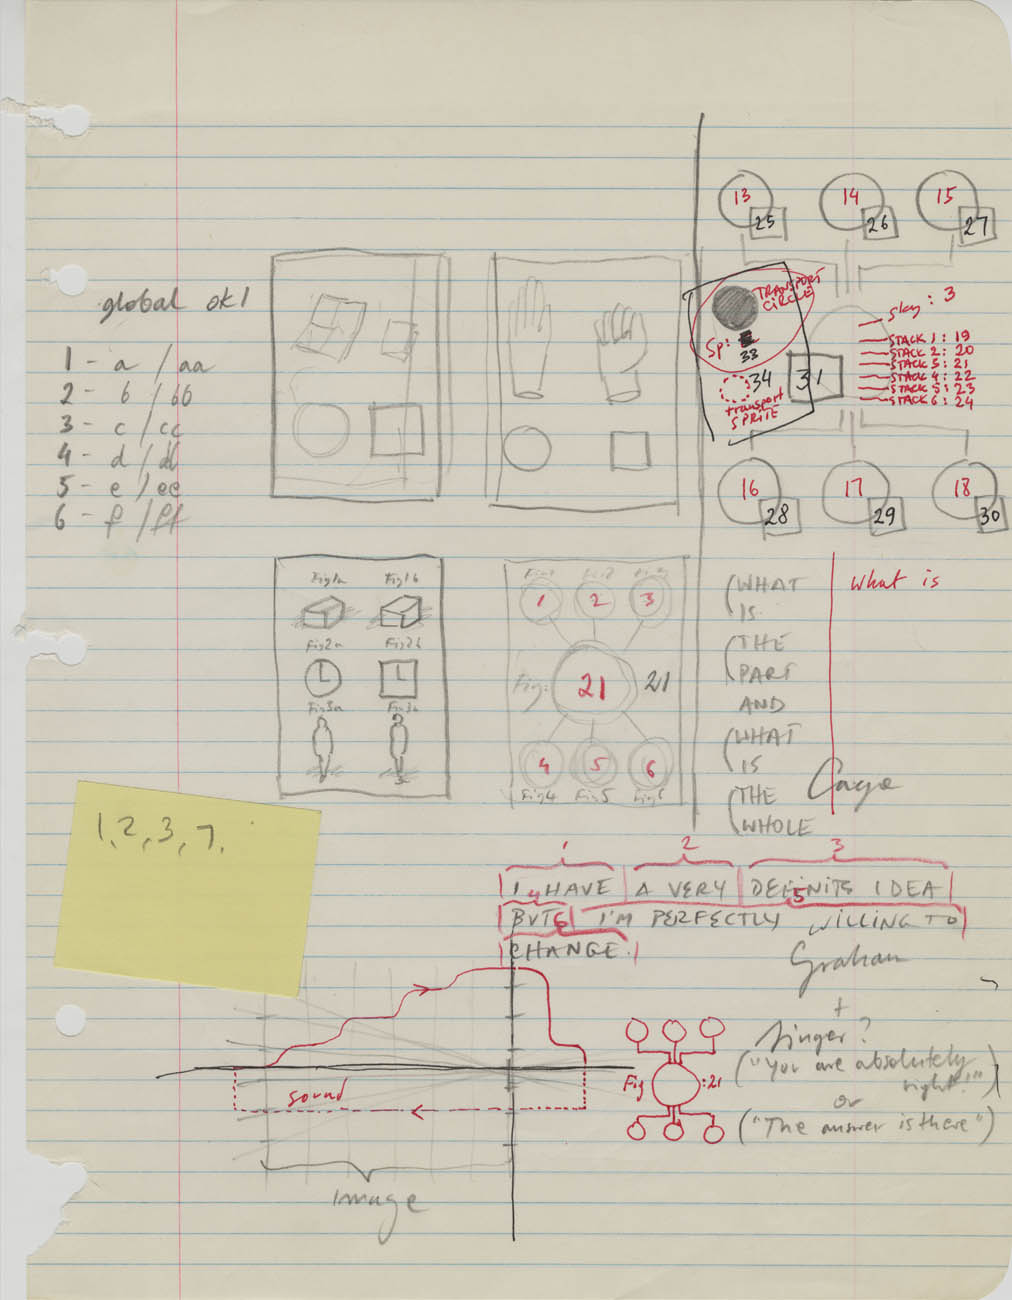 13
14
15
25
26
27
global ok1
1 - a / aa
2 - b / bb
3 - c / cc
4 - d / dd
5 - e / ee
6 - f / ff
TRANSPORT
CIRCLE
Sp:
33
34
transport
SPRITE
31
sky : 3
STACK 1 : 19
STACK 2 : 20
STACK 3 : 21
STACK 4 : 22
STACK 5 : 23
STACK 6 : 24
16
17
18
28
29
30
Fig1a
Fig1b
Fig2a
Fig2b
Fig3a
Fig3b
Fig1
Fig2
Fig3
1
2
3
Fig:
21
21
4
5
6
Fig4
Fig5
Fig6
WHAT
IS
THE
PART
AND
WHAT
IS
THE
WHOLE
what is
Cage
1, 2, 3, 7,
1
2
3
I HAVE A VERY DEFINITE IDEA
4
5
BUT I'M PERFECTLY WILLING TO
6
CHANGE.
Graham
+
Singer?
("You are absolutely
right!")
or
("The answer is there")
Fig :21
sound
image